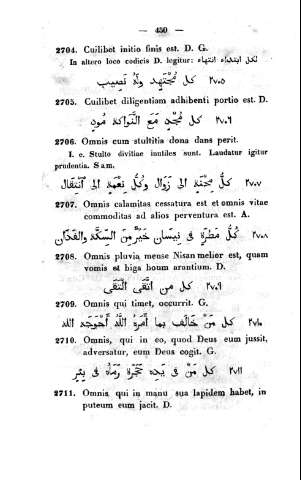 — 450 —
2704. Cuilibet initio finis est. D. G.
In altero loco codicis D. legitur: لكل ابتداء انتهاء
٢٧٠٥ كل مجتهد وله نصيب
2705. Cuilibet diligentiam adhibenti portio est. D.
٢٧٠٦ كل مجد مع النواكة مود
2706. Omnis cum stultitia dona dans perit.
I. e. Stulto divitiae inutiles sunt. Laudatur igitur
prudentia. Sam.
٢٧٠٧ كل محنة الى زوال وكل نعمة الى انتقال
2707. Omnis calamitas cessatura est et omnis vitae
commoditas ad alios perventura est. A.
٢٧٠٨ كل مطرة فى نيسان خير من السكة والفدان
2708. Omnis pluvia mense Nisan melior est, quam
vomis et biga boum arantium. D.
٢٧٠٩ كل من اتقى التقى
2709. Omnis qui timet, occurrit. G.
٢٧١٠ كل من خالف بما أمره الله أحوجه الله
2710. Omnis, qui in eo, quod Deus eum jussit,
adversatur, eum Deus cogit. G.
٢٧١١ كل من فى يده حجرة رماه فى بئر
2711. Omnis qui in manu sua lapidem habet, in
puteum eum jacit. D.